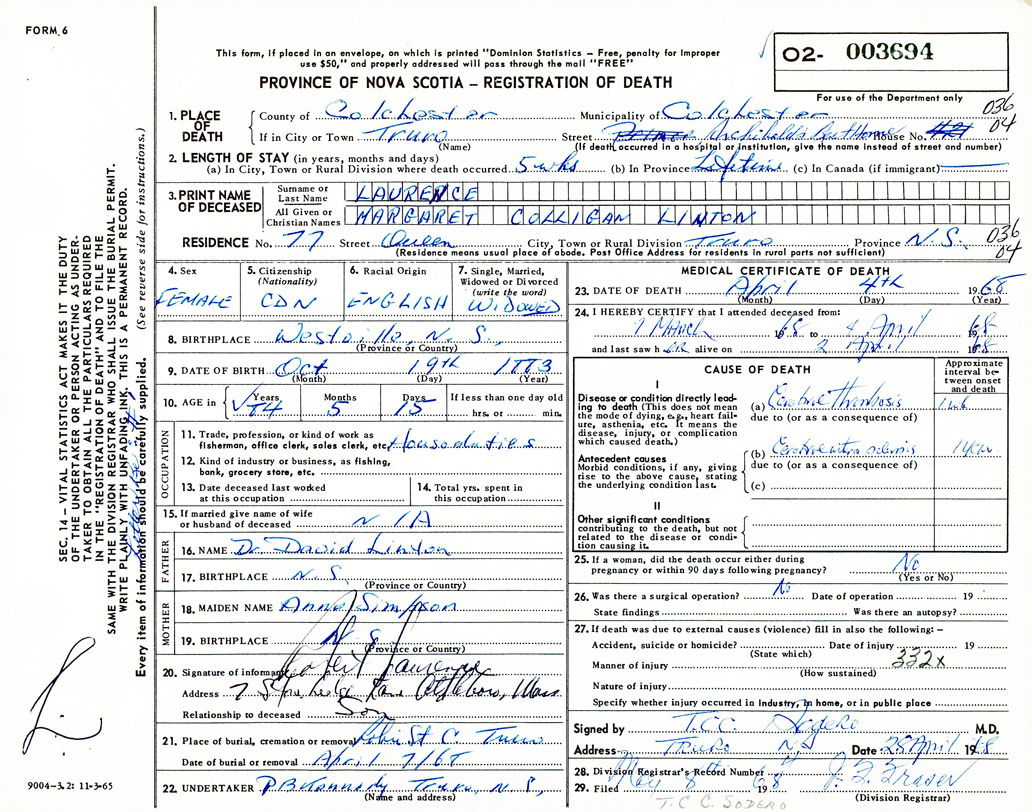 FORM 6
This form, if placed in an envelope, on which is printed "Dominion Statistics – Free, penalty for improper
use $50," and properly addressed will pass through the mail "FREE"
PROVINCE OF NOVA SCOTIA – REGISTRATION OF DEATH
02- 003694
For use of the Department only
036
04
1. PLACE OF DEATH
County of Colchester Municipality of Colchester
If in City or Town Truro Street Archibald's Rest Home House No.
(Name) (If death occurred in a hospital or institution, give the name instead of street and number)
2. LENGTH OF STAY (in years, months and days)
(a) In City, Town or Rural Division where death occurred 5 wks (b) In Province Lifetime (c) In Canada (if immigrant)
3. PRINT NAME OF DECEASED
Surname or Last Name LAURENCE
All Given or Christian Names MARGARET COLLIGAN LINTON
RESIDENCE No. 77 Street Queen City, Town or Rural Division Truro Province N.S.
036
04
(Residence means usual place of abode. Post Office Address for residents in rural parts not sufficient)
4. Sex FEMALE
5. Citizenship (Nationality) CDN
6. Racial Origin ENGLISH
7. Single, Married, Widowed or Divorced (write the word) WIDOWED
8. BIRTHPLACE Westville, N.S.,
(Province or Country)
9. DATE OF BIRTH Oct 19th 1883
(Month) (Day) (Year)
10. AGE in Years 84 Months 5 Days 15 If less than one day old hrs. or min.
OCCUPATION
11. Trade, profession, or kind of work as fisherman, office clerk, sales clerk, etc. Houseduties
12. Kind of industry or business, as fishing, bank, grocery store, etc.
13. Date deceased last worked at this occupation
14. Total yrs. spent in this occupation
15. If married give name of wife or husband of deceased N/A
FATHER
16. NAME Dr. David Linton
17. BIRTHPLACE N.S.
(Province or Country)
MOTHER
18. MAIDEN NAME Anna Simpson
19. BIRTHPLACE N.S.
(Province or Country)
20. Signature of informant Robert Laurence
Address 7 Lane Attleboro, Mass
Relationship to deceased Son
21. Place of burial, cremation or removal Robie St C Truro
Date of burial or removal April 7/68
22. UNDERTAKER Truro, N.S.,
(Name and address)
MEDICAL CERTIFICATE OF DEATH
23. DATE OF DEATH April 4th 1968
(Month) (Day) (Year)
24. I HEREBY CERTIFY that I attended deceased from:
1 March 1968 to 4 April 1968
and last saw her alive on 2 April 1968
CAUSE OF DEATH
Approximate interval between onset and death
I
Disease or condition directly leading to death (This does not mean the mode of dying, e.g., heart failure, asthenia, etc. It means the disease, injury, or complication which caused death.)
(a) Cerebral Thrombosis 1 wk
due to (or as a consequence of)
Antecedent causes
Morbid conditions, if any, giving rise to the above cause, stating the underlying condition last.
(b)
due to (or as a consequence of)
(c)
II
Other significant conditions contributing to the death, but not related to the disease or condition causing it.
25. If a woman, did the death occur either during pregnancy or within 90 days following pregnancy? No
(Yes or No)
26. Was there a surgical operation? No Date of operation 19
State findings Was there an autopsy?
27. If death was due to external causes (violence) fill in also the following: –
Accident, suicide or homicide? Date of injury 19
(State which)
332x
Manner of injury
(How sustained)
Nature of injury
Specify whether injury occurred in Industry, In home, or in public place
Signed by T.C.C. Sodero M.D.
Address Truro NS Date 28 April 1968
28. Division Registrar's Record Number
29. Filed May 8 1968 J. F. Fraser
(Division Registrar)
T. C. C. SODERO
SEC. 14 – VITAL STATISTICS ACT MAKES IT THE DUTY
OF THE UNDERTAKER OR PERSON ACTING AS UNDER-
TAKER TO OBTAIN ALL THE PARTICULARS REQUIRED
IN THE "REGISTRATION OF DEATH" AND TO FILE THE
SAME WITH THE DIVISION REGISTRAR WHO SHALL ISSUE THE BURIAL PERMIT.
WRITE PLAINLY WITH UNFADING INK, THIS IS A PERMANENT RECORD.
Every item of information should be carefully supplied. (See reverse side for instructions.)
9004-3.2: 11-3-65